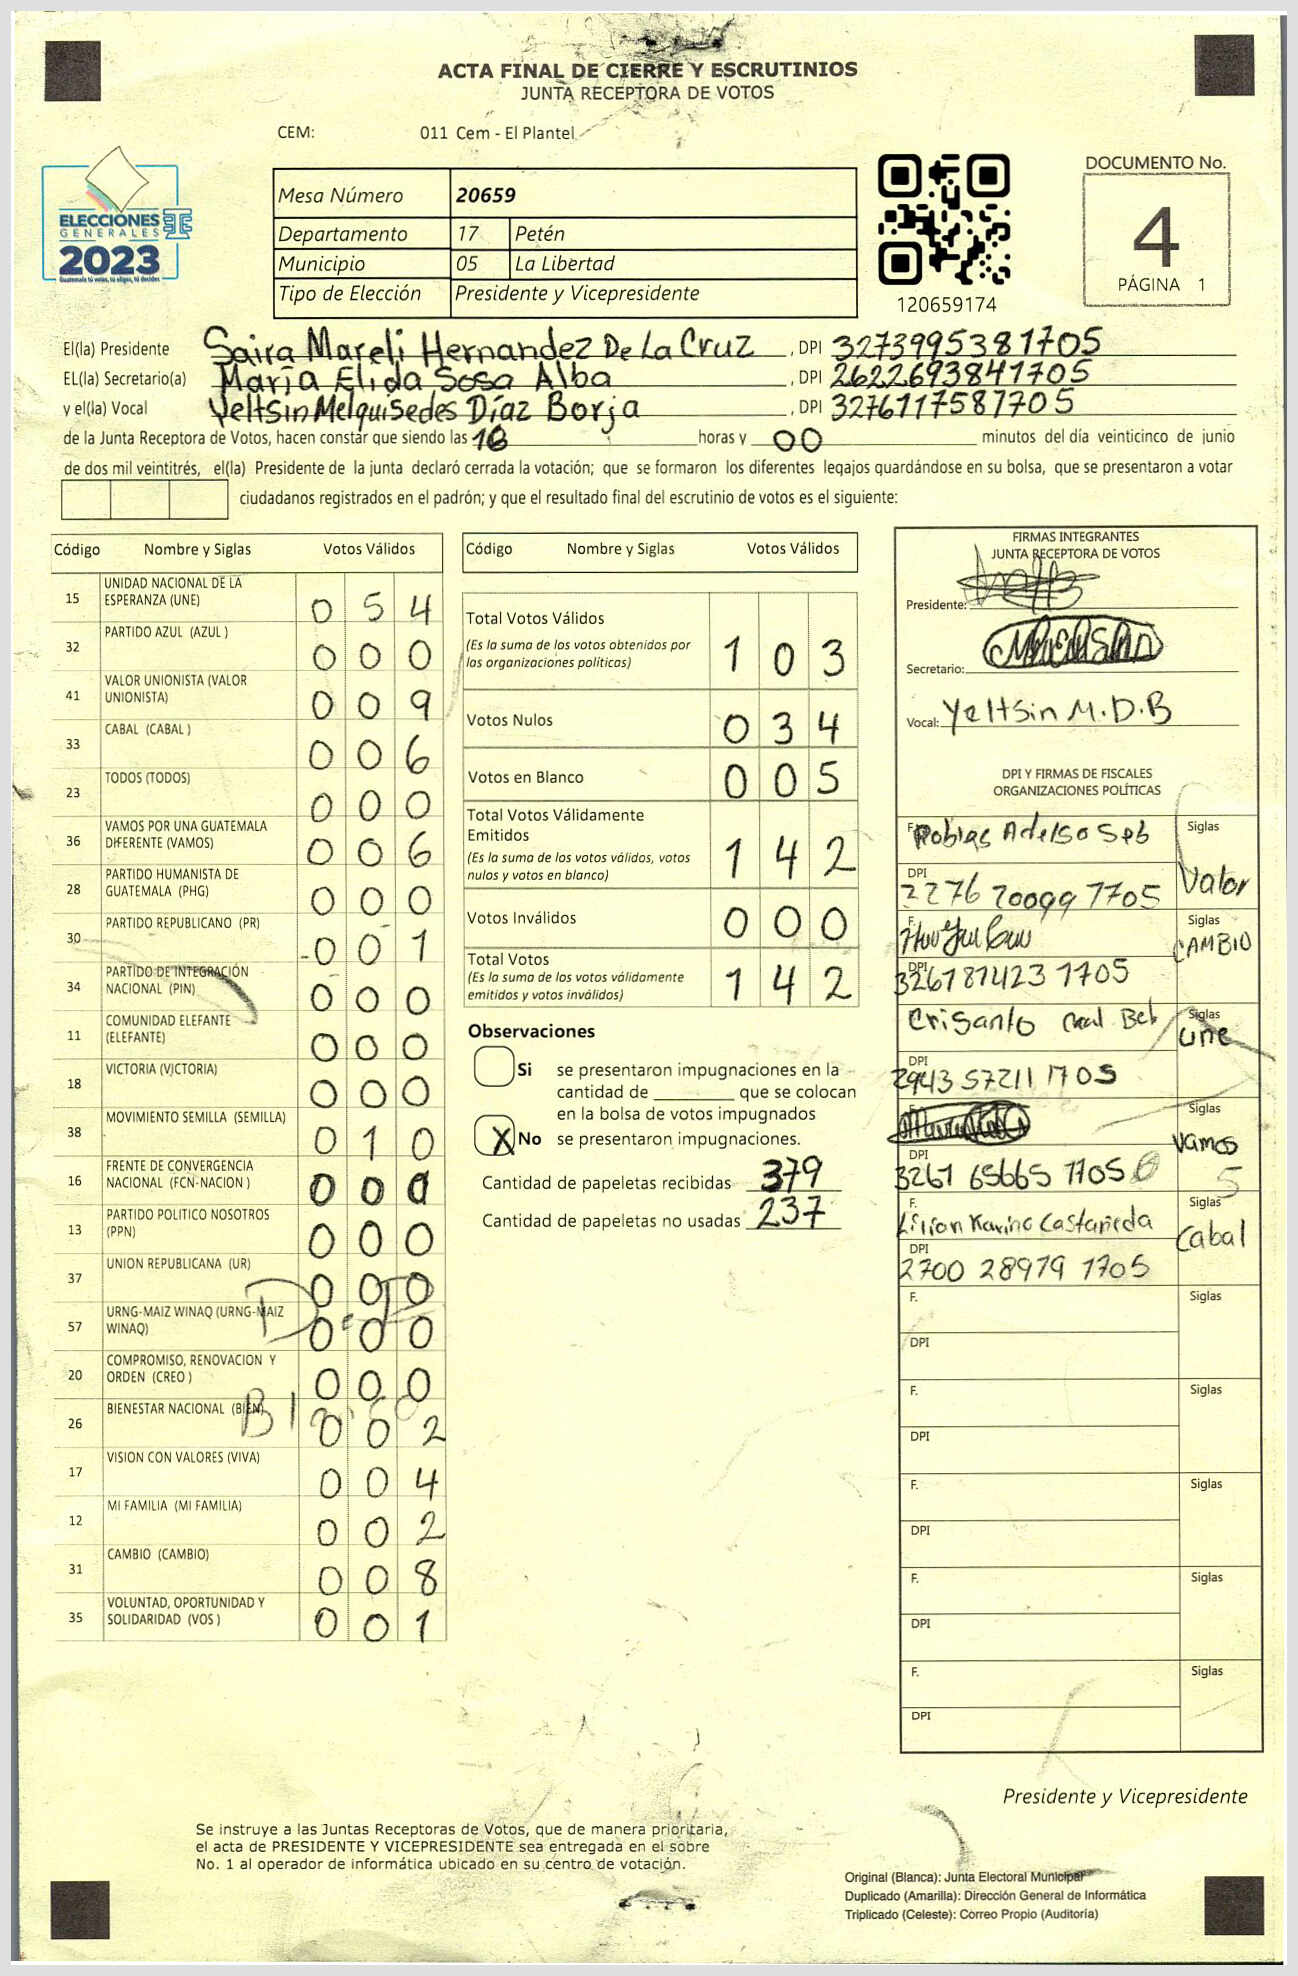 ACTA FINAL DE CIERRE Y ESCRUTINIOS
JUNTA RECEPTORA DE VOTOS
CEM: 011 Cem - El Plantel
ELECCIONES
GENERALES
2023
Guatemala tú votas, tú eliges, tú decides
Mesa Número 20659
Departamento 17 Petén
Municipio 05 La Libertad
Tipo de Elección Presidente y Vicepresidente
120659174
DOCUMENTO No.
4
PÁGINA 1
El(la) Presidente Saira Mareli Hernandez De La Cruz , DPI 3273995381705
EL(la) Secretario(a) María Elida Sosa Alba , DPI 2622693841705
y el(la) Vocal Yeltsin Melquisedes Díaz Borja , DPI 3276117581705
de la Junta Receptora de Votos, hacen constar que siendo las 18 horas y 00 minutos del día veinticinco de junio
de dos mil veintitrés, el(la) Presidente de la junta declaró cerrada la votación; que se formaron los diferentes legajos quardándose en su bolsa, que se presentaron a votar
ciudadanos registrados en el padrón; y que el resultado final del escrutinio de votos es el siguiente:
Código Nombre y Siglas Votos Válidos
15 UNIDAD NACIONAL DE LA ESPERANZA (UNE) 0 5 4
32 PARTIDO AZUL (AZUL ) 0 0 0
41 VALOR UNIONISTA (VALOR UNIONISTA) 0 0 9
33 CABAL (CABAL ) 0 0 6
23 TODOS (TODOS) 0 0 0
36 VAMOS POR UNA GUATEMALA DIFERENTE (VAMOS) 0 0 6
28 PARTIDO HUMANISTA DE GUATEMALA (PHG) 0 0 0
30 PARTIDO REPUBLICANO (PR) 0 0 1
34 PARTIDO DE INTEGRACIÓN NACIONAL (PIN) 0 0 0
11 COMUNIDAD ELEFANTE (ELEFANTE) 0 0 0
18 VICTORIA (VICTORIA) 0 0 0
38 MOVIMIENTO SEMILLA (SEMILLA) 0 1 0
16 FRENTE DE CONVERGENCIA NACIONAL (FCN-NACION ) 0 0 0
13 PARTIDO POLITICO NOSOTROS (PPN) 0 0 0
37 UNION REPUBLICANA (UR) 0 0 0
57 URNG-MAIZ WINAQ (URNG-MAIZ WINAQ) 0 0 0
20 COMPROMISO, RENOVACION Y ORDEN (CREO ) 0 0 0
26 BIENESTAR NACIONAL (BIEN) 0 0 2
17 VISION CON VALORES (VIVA) 0 0 4
12 MI FAMILIA (MI FAMILIA) 0 0 2
31 CAMBIO (CAMBIO) 0 0 8
35 VOLUNTAD, OPORTUNIDAD Y SOLIDARIDAD (VOS ) 0 0 1
Código Nombre y Siglas Votos Válidos
Total Votos Válidos 1 0 3
(Es la suma de los votos obtenidos por
las organizaciones políticas)
Votos Nulos 0 3 4
Votos en Blanco 0 0 5
Total Votos Válidamente
Emitidos 1 4 2
(Es la suma de los votos válidos, votos
nulos y votos en blanco)
Votos Inválidos 0 0 0
Total Votos 1 4 2
(Es la suma de los votos válidamente
emitidos y votos inválidos)
Observaciones
Si se presentaron impugnaciones en la
cantidad de ________ que se colocan
en la bolsa de votos impugnados
X No se presentaron impugnaciones.
Cantidad de papeletas recibidas 379
Cantidad de papeletas no usadas 237
FIRMAS INTEGRANTES
JUNTA RECEPTORA DE VOTOS
Presidente:
Secretario:
Vocal: Yeltsin M.D.B
DPI Y FIRMAS DE FISCALES
ORGANIZACIONES POLÍTICAS
F. Robles Adelso Siglas
DPI 2276 20099 1705 Valor
F. Siglas
DPI 326781423 1705 CAMBIO
Crisanto Siglas
DPI 2943 57211 1705 une
Siglas
DPI 3261 65665 1705 vamos
F. Lilian Karina Castañeda Siglas
DPI 2700 28979 1705 Cabal
F. Siglas
DPI
F. Siglas
DPI
F. Siglas
DPI
F. Siglas
DPI
F. Siglas
DPI
Presidente y Vicepresidente
Se instruye a las Juntas Receptoras de Votos, que de manera prioritaria,
el acta de PRESIDENTE Y VICEPRESIDENTE sea entregada en el sobre
No. 1 al operador de informática ubicado en su centro de votación.
Original (Blanca): Junta Electoral Municipal
Duplicado (Amarilla): Dirección General de Informática
Triplicado (Celeste): Correo Propio (Auditoría)